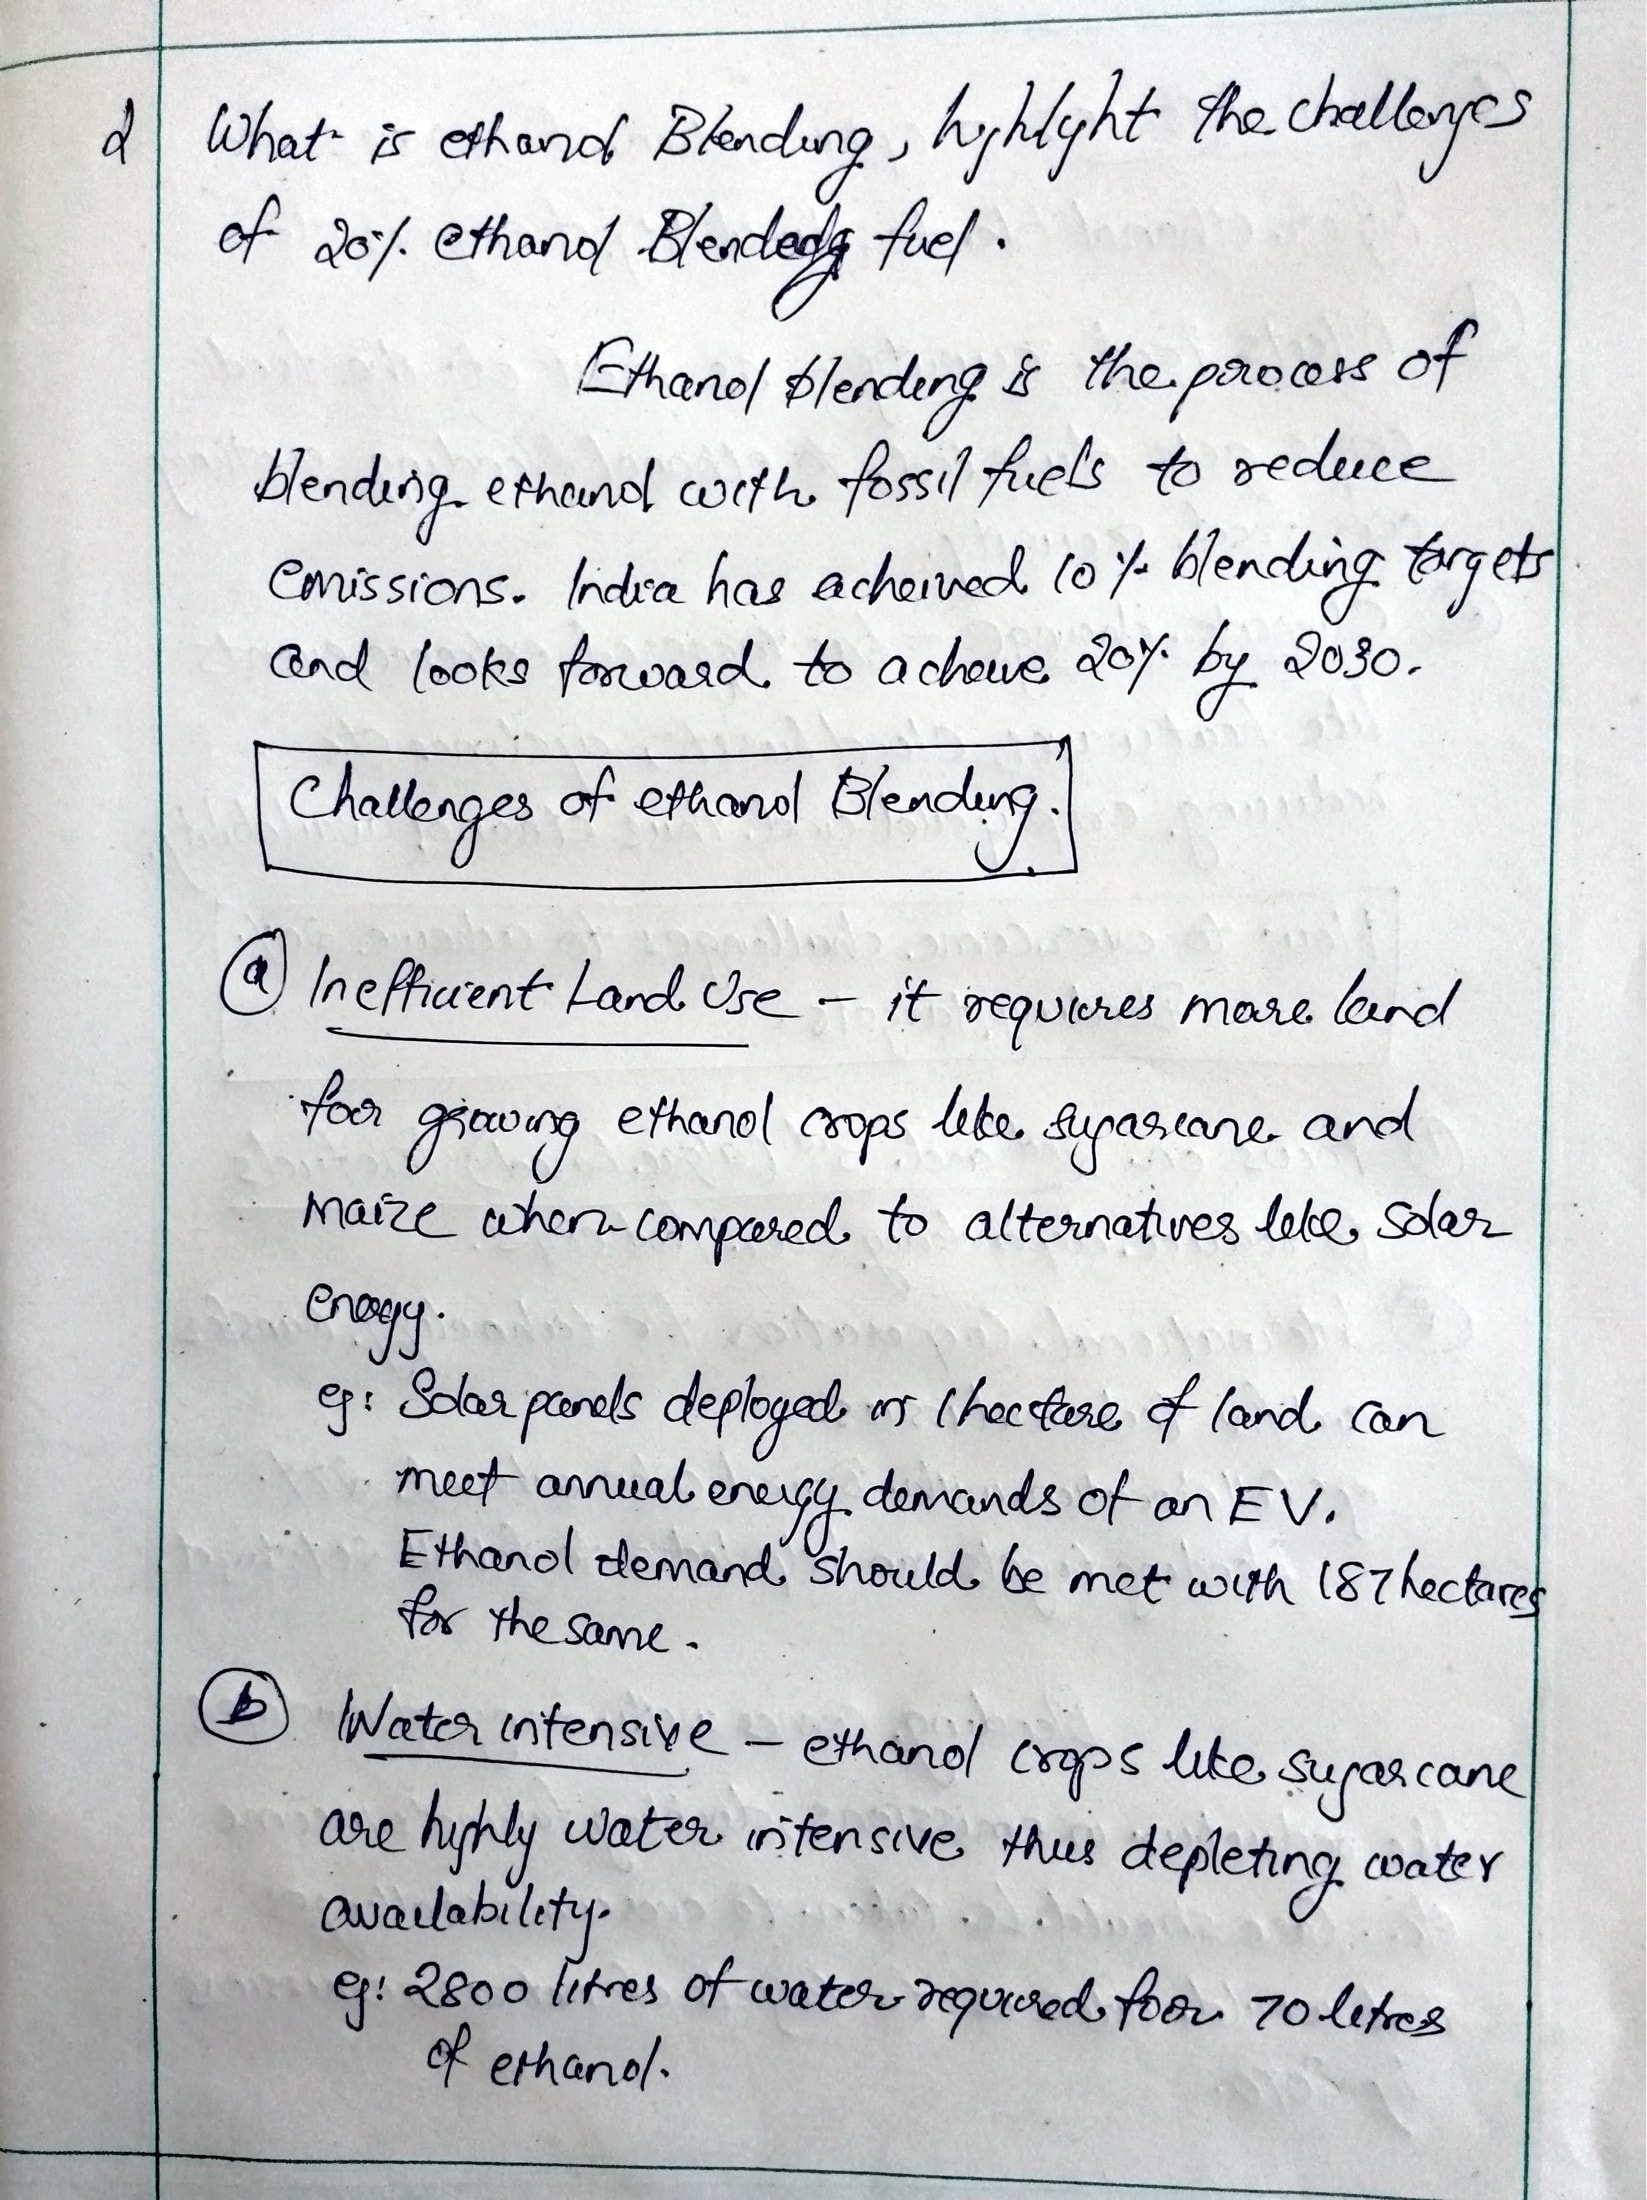 2 What is ethanol Blending, highlight the challenges
of 20% ethanol Blended fuel.
Ethanol blending is the process of
blending ethanol with fossil fuels to reduce
emissions. India has acheived 10% blending targets
and looks forward to acheive 20% by 2030.
Challenges of ethanol Blending.
(a) Inefficient Land Use – it requires more land
for growing ethanol crops like sugarcane and
Maize when compared to alternatives like solar
energy.
eg: Solar panels deployed in 1 hectare of land can
meet annual energy demands of an EV.
Ethanol demand should be met with 187 hectares
for the same.
(b) Water intensive – ethanol crops like sugarcane
are highly water intensive thus depleting water
availability.
eg: 2800 litres of water required for 70 litres
of ethanol.